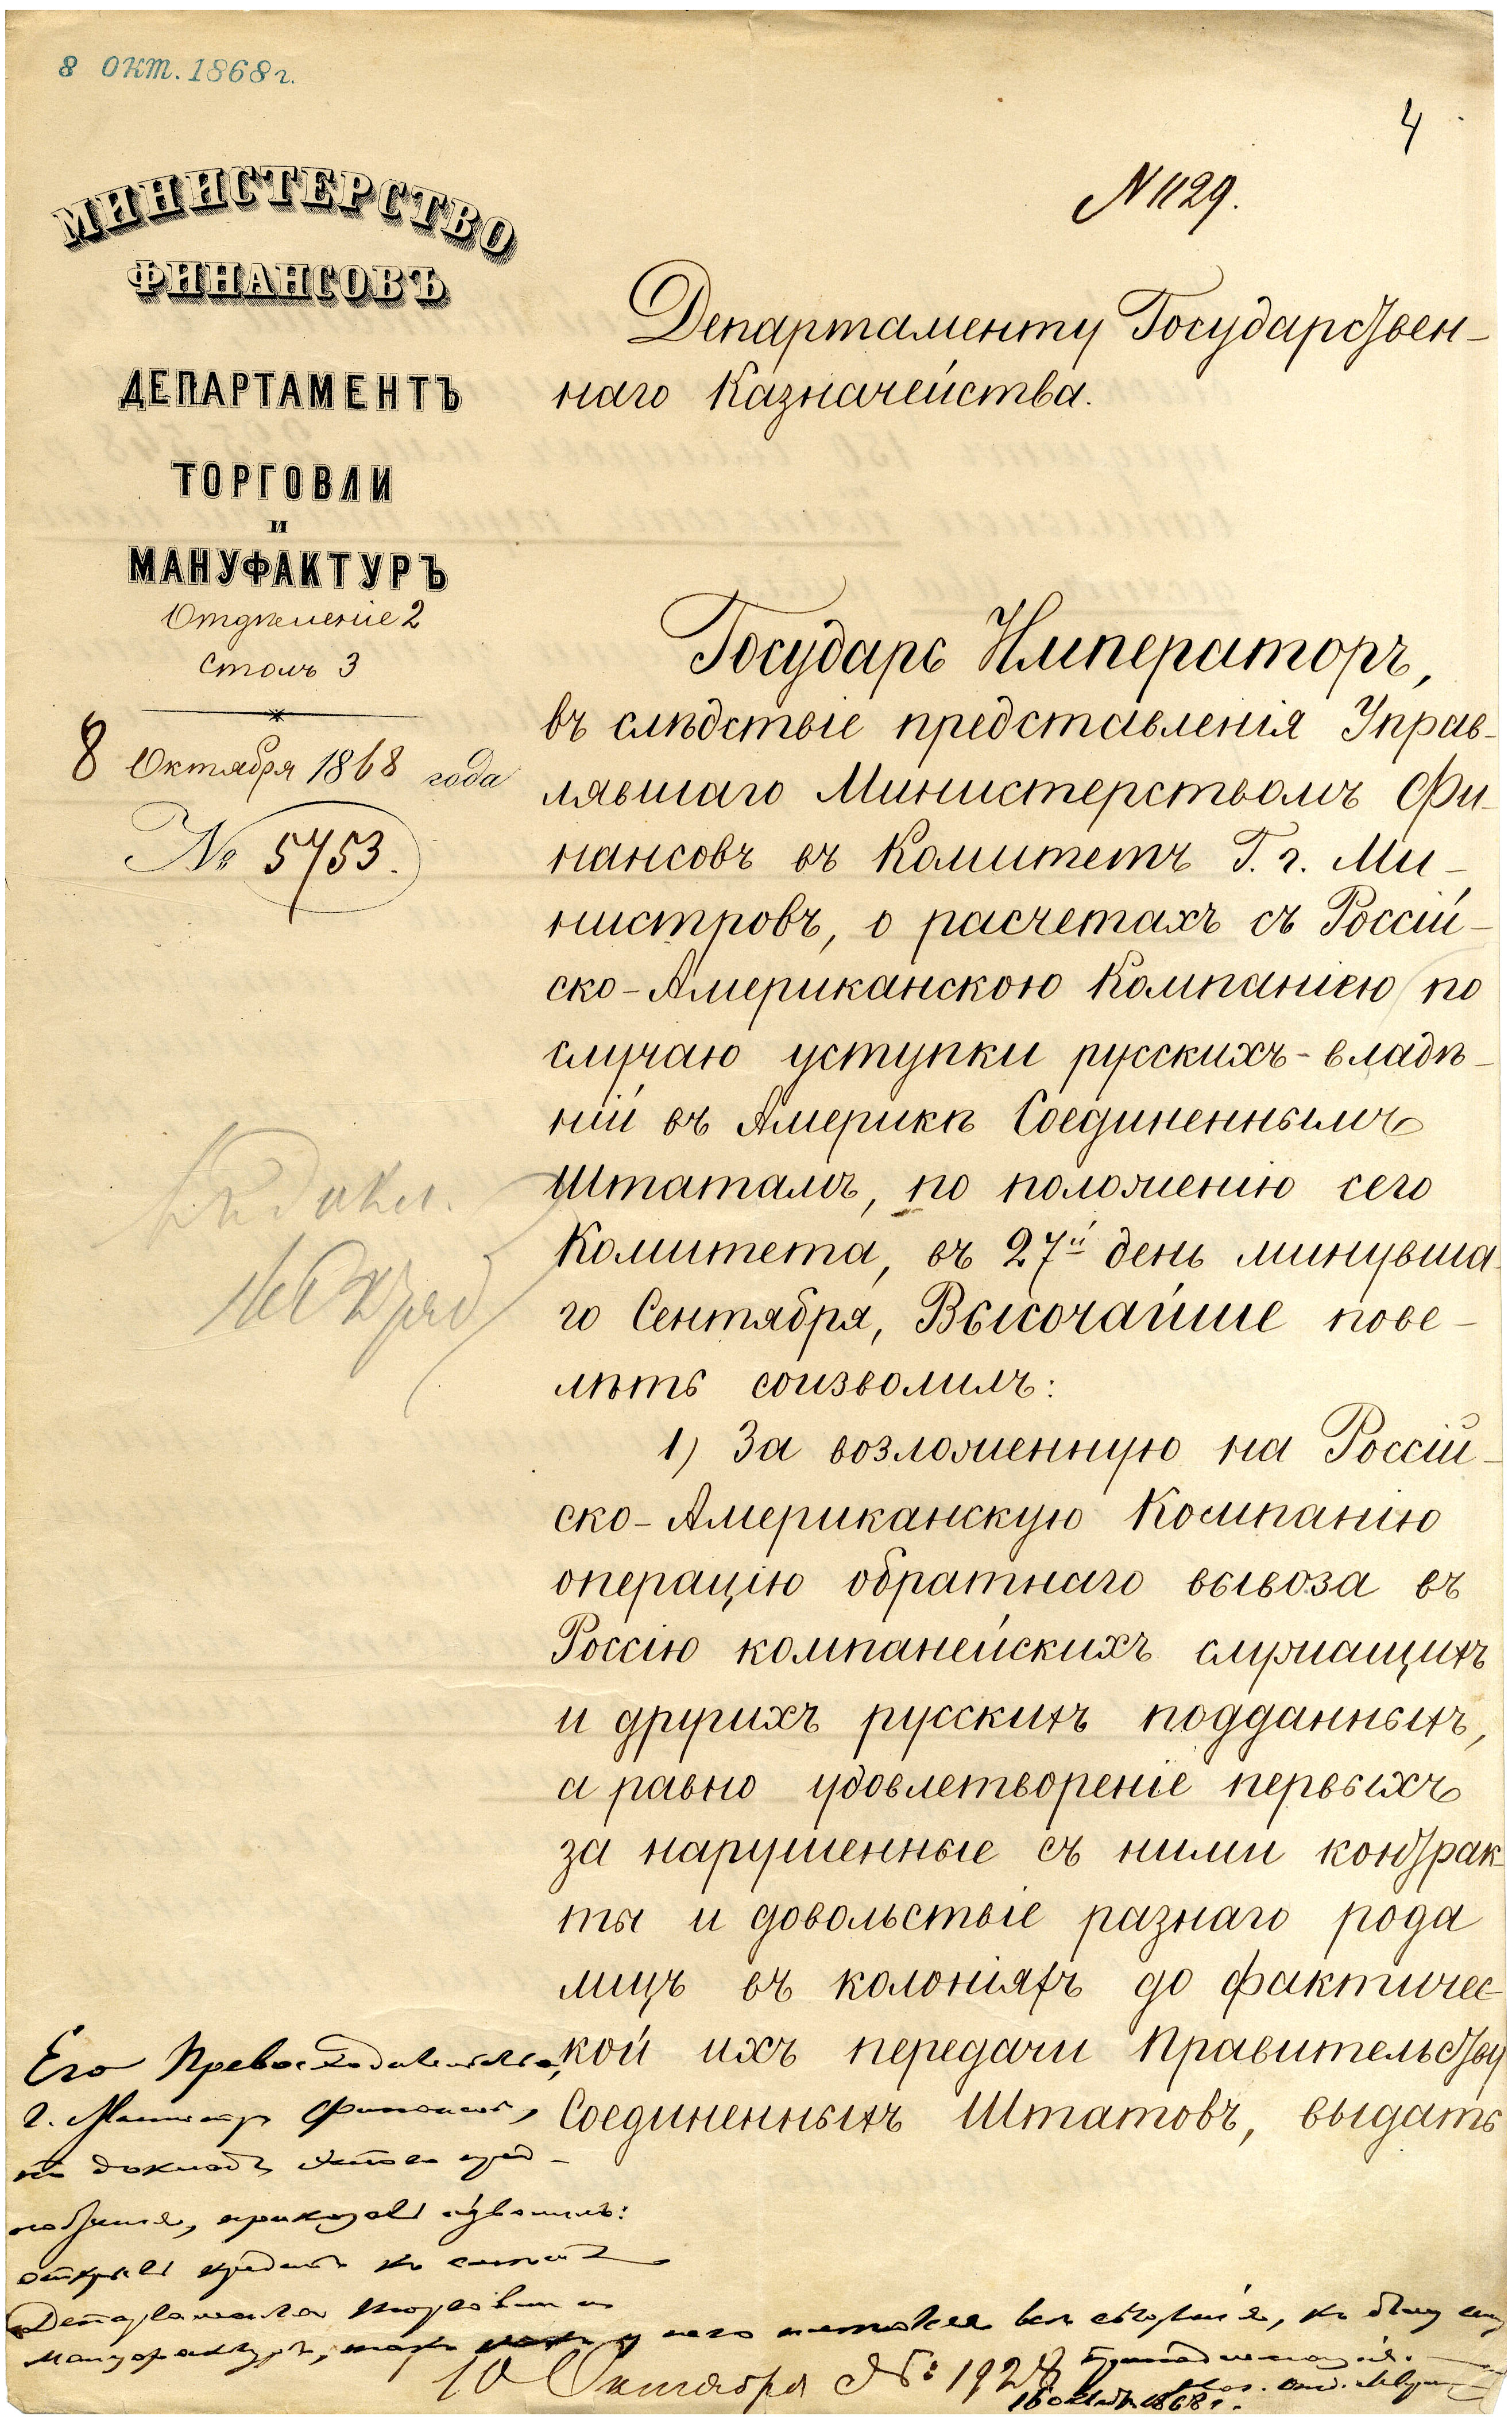 8 окт. 1868 г.
4
N 1129.
МИНИСТЕРСТВО
ФИНАНСОВЪ
ДЕПАРТАМЕНТЪ
ТОРГОВЛИ
И
МАНУФАКТУРЪ
Отдѣленіе 2
Столъ 3
8 Октября 1868 года
№ 5753.
Департаменту Государствен-
наго Казначейства.
Государь Императоръ,
въ слѣдствіе представленія Управ-
лявшаго Министерствомъ Фи-
нансовъ въ Комитетъ Г. г. Ми-
нистровъ, о расчетахъ съ Россій-
ско-Американскою Компаніею по
случаю уступки русскихъ-владѣ-
ній въ Америкѣ Соединеннымъ
Штатамъ, по положенію сего
Комитета, въ 27й день минувша-
го Сентября, Высочайше пове-
лѣть соизволилъ:
1) За возложенную на Россій-
ско-Американскую Компанію
операцію обратнаго вывоза въ
Россію компанейскихъ служащихъ
и другихъ русскихъ подданныхъ,
а равно удовлетвореніе первыхъ
за нарушенные съ ними контрак-
ты и довольствіе разнаго рода
лицъ въ колоніяхъ до фактичес-
кой ихъ передачи Правительству
Соединенныхъ Штатовъ, выдать
Его Превосходительство,
г. Министръ Финансовъ,
по докладѣ
приказать изволилъ:
открыть кредитъ по смѣтѣ
Департамента Торговли и
Мануфактуръ,
10 Октября № 1928
16 Октяб. 1868 г.